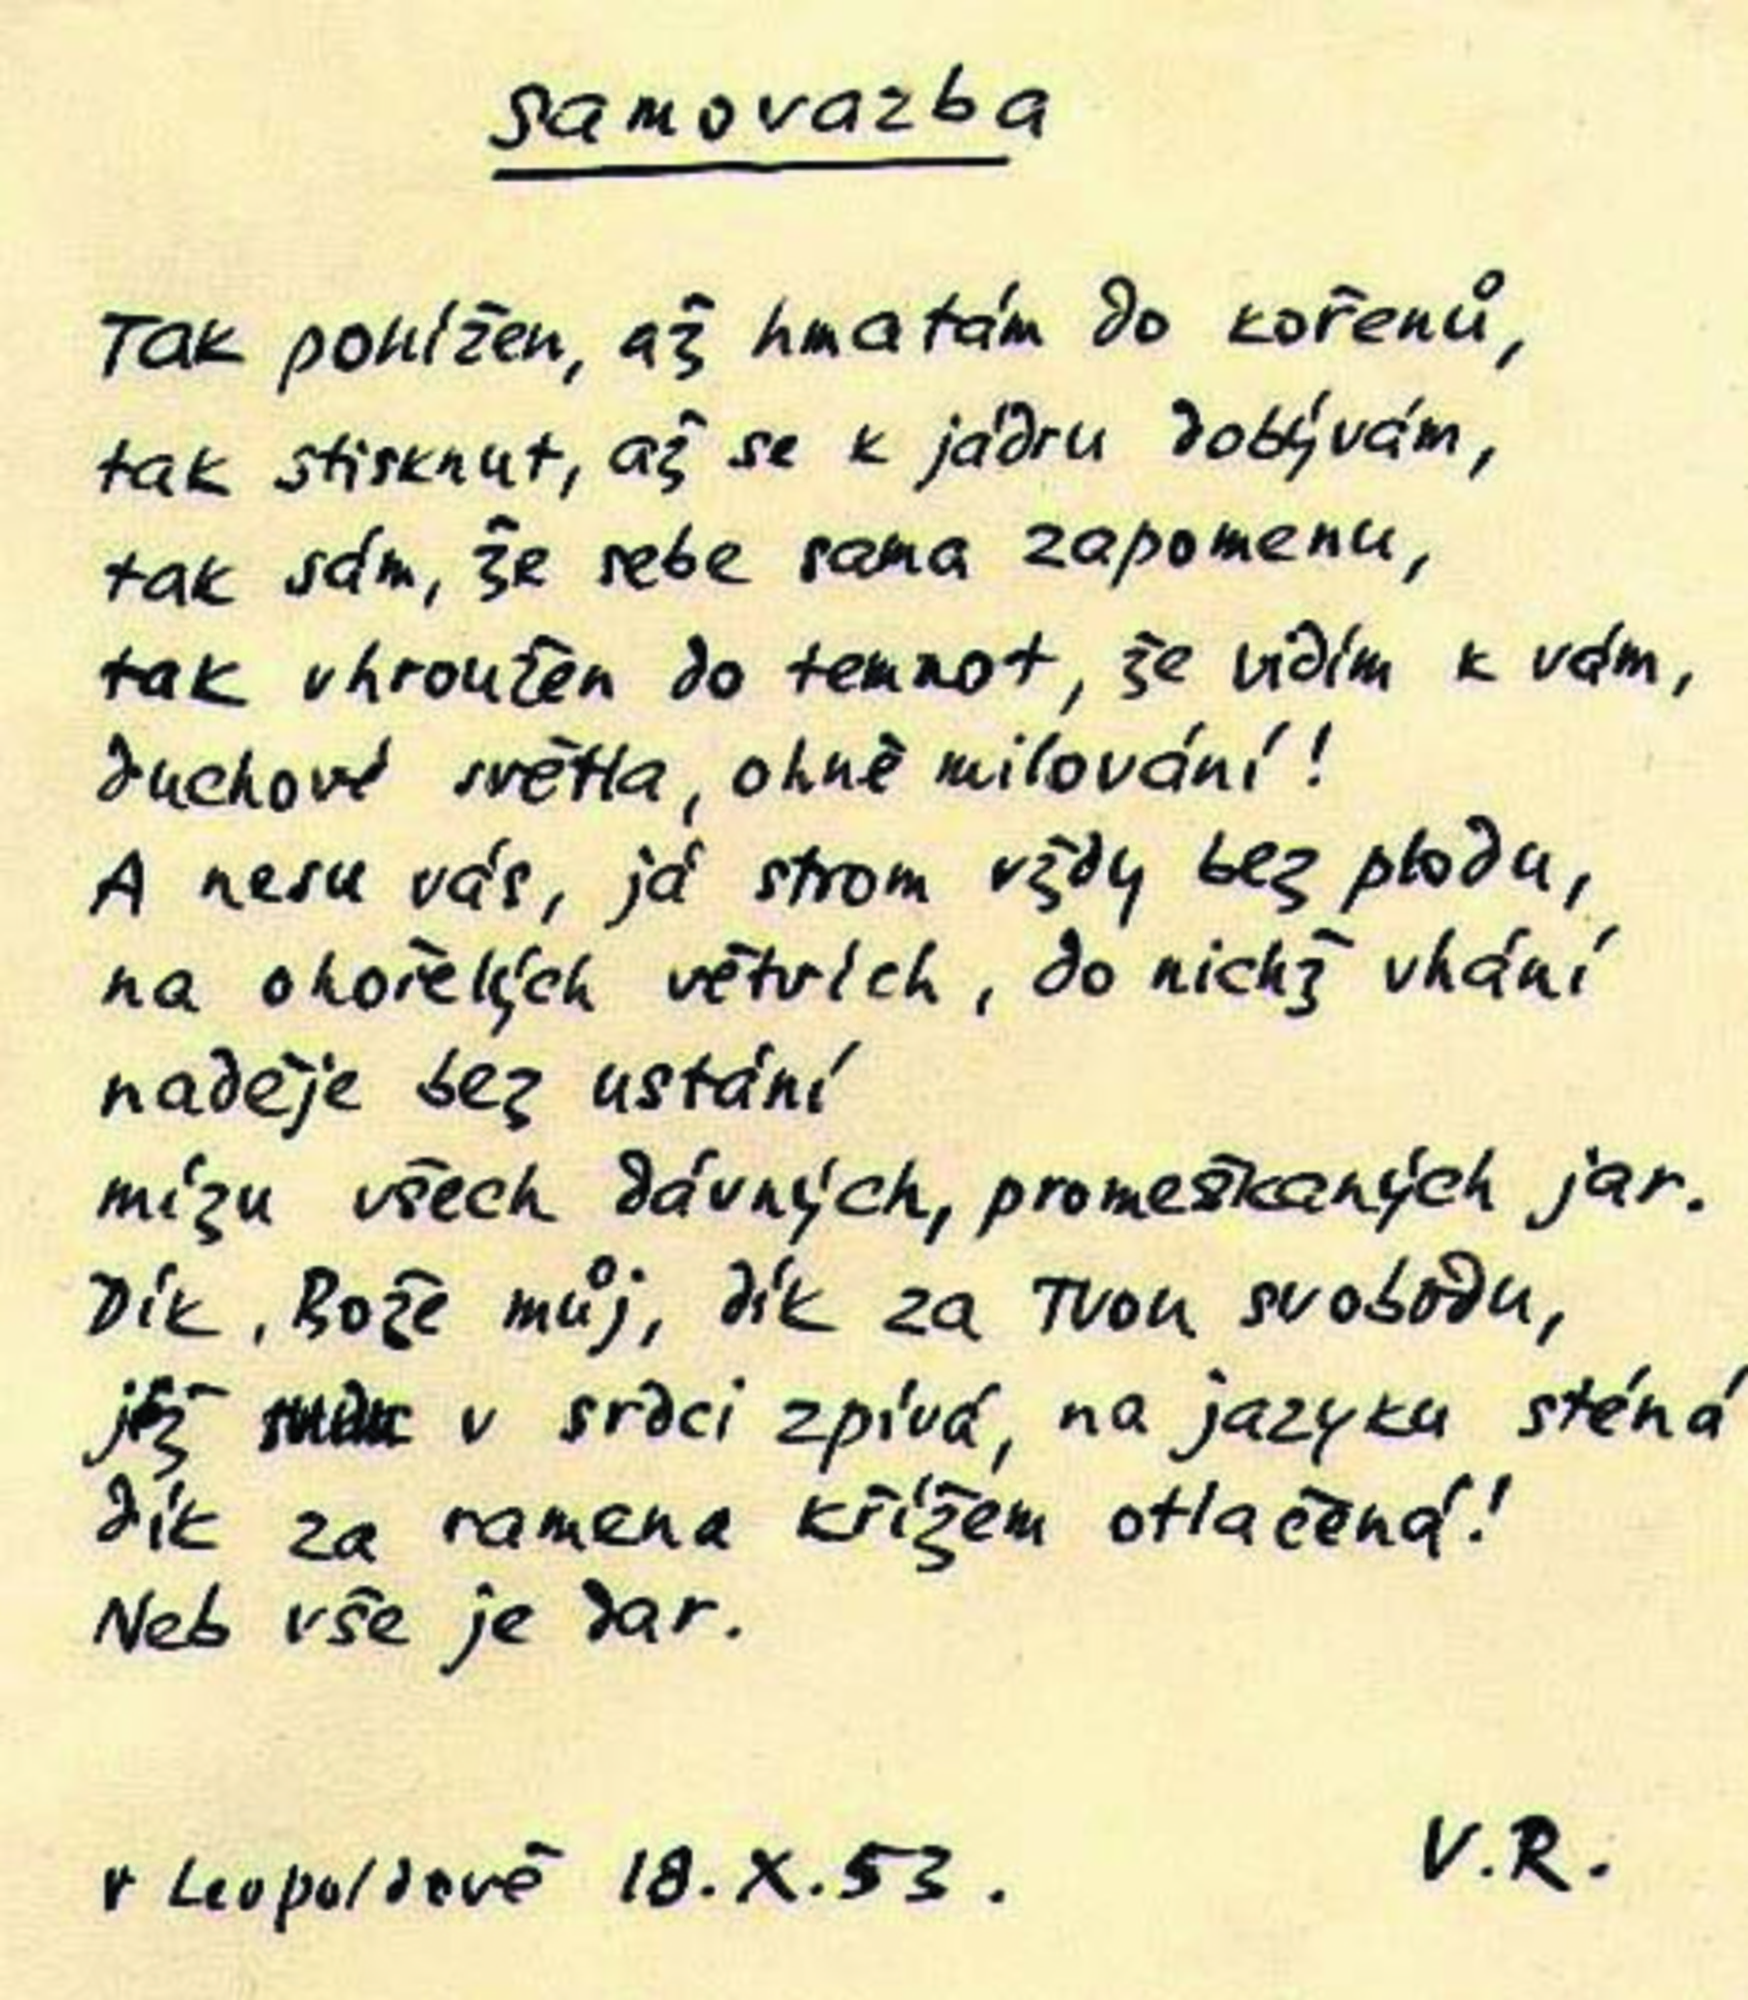 Samovazba
Tak pohížen, až hmatám do kořenů,
tak stisknut, až se k jádru dobývám,
tak sám, že sebe sama zapomenu,
tak vhroužen do temnot, že vidím k vám,
duchové světla, ohně milování!
A nesu vás, já strom vždy bez plodu,
na ohořelých větvích, do nichž vhání
naděje bez ustání
mízu všech dávných, promeškaných jar.
Dík, Bože můj, dík za Tvou svobodu,
jež v srdci zpívá, na jazyku sténá
dík za ramena křížem otlačená!
Neb vše je dar.
v Leopoldově 18.X.53. V.R.